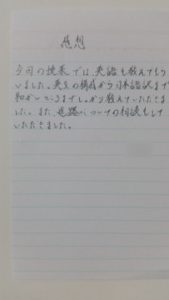 感想
今回の授業では、英語を教えてもら
いました。英文の構成から日本語訳まで
細かいところまでしっかり教えていただきま
した。また、進路についての相談もして
いただきました。